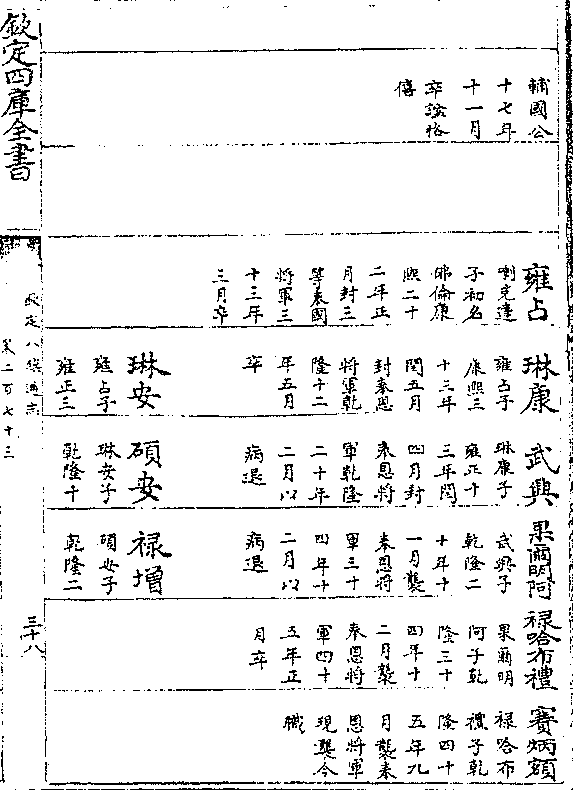 輔國公
十七年
十一月
卒諡恪
僖
雍占
喇克達
子初名
佛倫康
熙二十
二年正
月封三
等奉國
將軍三
十三年
三月卒
琳康
雍占子
康熙三
十三年
閏五月
封奉恩
將軍乾
隆十二
年五月
卒
琳安
雍占子
雍正三
武興
琳康子
雍正十
三年閏
四月封
奉恩將
軍乾隆
二十年
二月以
病退
碩安
琳安子
乾隆十
果爾明阿
武興子
乾隆二
十年十
一月襲
奉恩將
軍三十
四年十
二月以
病退
祿增
碩安子
乾隆二
祿哈布禮
果爾明
阿子乾
隆三十
四年十
二月襲
奉恩將
軍四十
五年正
月卒
賽炳額
祿哈布
禮子乾
隆四十
五年九
月襲奉
恩將軍
現襲今
職
欽定四庫全書
欽定八旗通志
卷二百七十三
三十八